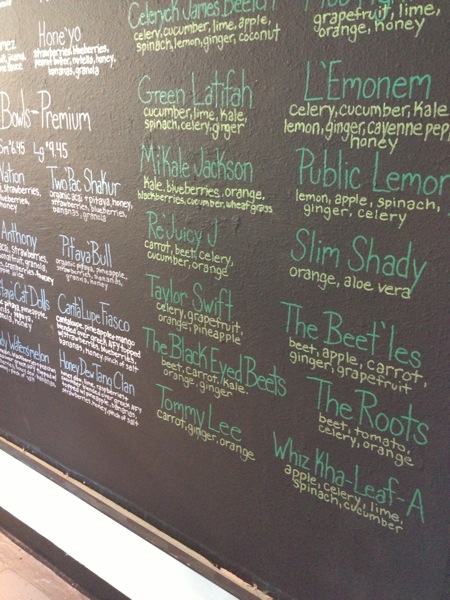 Hone'yo
strawberries, blueberries,
peanut butter, nutella, honey,
bananas, granola
Bowls-Premium
Sm $6.45 Lg $9.45
Nation
strawberries,
honey
Two'Pac Shakur
organic acai + pitaya, honey,
strawberries, blueberries,
bananas, granola
Anthony
acai, strawberries,
granola,
Pitaya'Bull
organic pitaya, pineapple,
strawberries, granola,
bananas, honey
Cat Dolls
Canta'Lupe Fiasco
cantaloupe, pineapple + mango
blended over greek NFY topped
w/strawberries, blueberries,
bananas, honey, pinch of salt
Watermelon
Honey Dew Tang Clan
strawberries, honey, pinch of salt
Celeryck James Beetch
celery, cucumber, lime, apple,
spinach, lemon, ginger, coconut
Green Latifah
cucumber, lime, kale,
spinach, celery, ginger
Mi'Kale Jackson
kale, blueberries, orange,
blackberries, cucumber, wheatgrass
Re'Juicy J
carrot, beet, celery,
cucumber, orange
Taylor Swift
celery, grapefruit,
orange, pineapple
The Black Eyed Beets
beet, carrot, kale,
orange, ginger
Tommy Lee
carrot, ginger, orange
grapefruit, lime,
orange, honey
L'Emonem
celery, cucumber, kale
lemon, ginger, cayenne pep
honey
Public Lemon
lemon, apple, spinach,
ginger, celery
Slim Shady
orange, aloe vera
The Beet'les
beet, apple, carrot,
ginger, grapefruit
The Roots
beet, tomato,
celery, orange
Whiz Kha-Leaf-A
apple, celery, lime,
spinach, cucumber